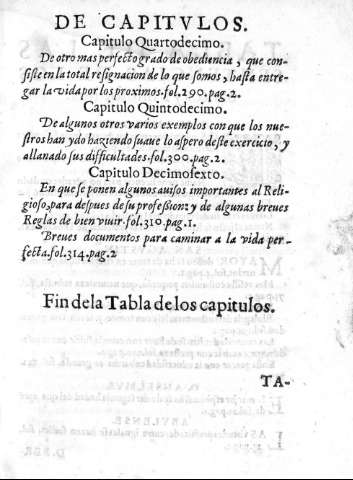 DE CAPITVLOS.
Capitulo Quartodecimo.
De otro mas perfecto grado de obediencia, que con-
siste en la total resignacion de lo que somos, hasta entre-
gar la vida por los proximos. fol.290.pag.2.
Capitulo Quintodecimo.
De algunos otros varios exemplos con que los nue-
stros han ydo haziendo suaue lo aspero deste exercicio, y
allanado sus difficultades. fol.300.pag.2.
Capitulo Decimosexto.
En que se ponen algunos auisos importantes al Reli-
gioso, para despues de su professionz y de algunas breves
Reglas de bien viuir. fol.310.pag.1.
Breves documentos para caminar a la vida per-
fecta. fol.314.pag.2
Fin de la Tabla de los capitulos.
TA-